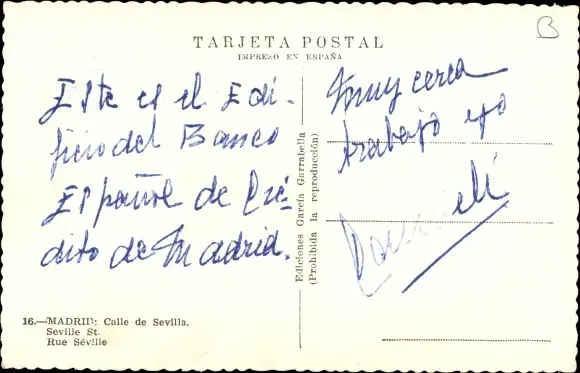 B
TARJETA POSTAL
IMPRESO EN ESPAÑA
Este es el Edi-
ficio del Banco
Español de Cré-
dito de Madrid.
Muy cerca
trabajo yo
Ediciones García Garrabella
(Prohibida la reproducción)
16.—MADRID: Calle de Sevilla.
Seville St.
Rue Séville